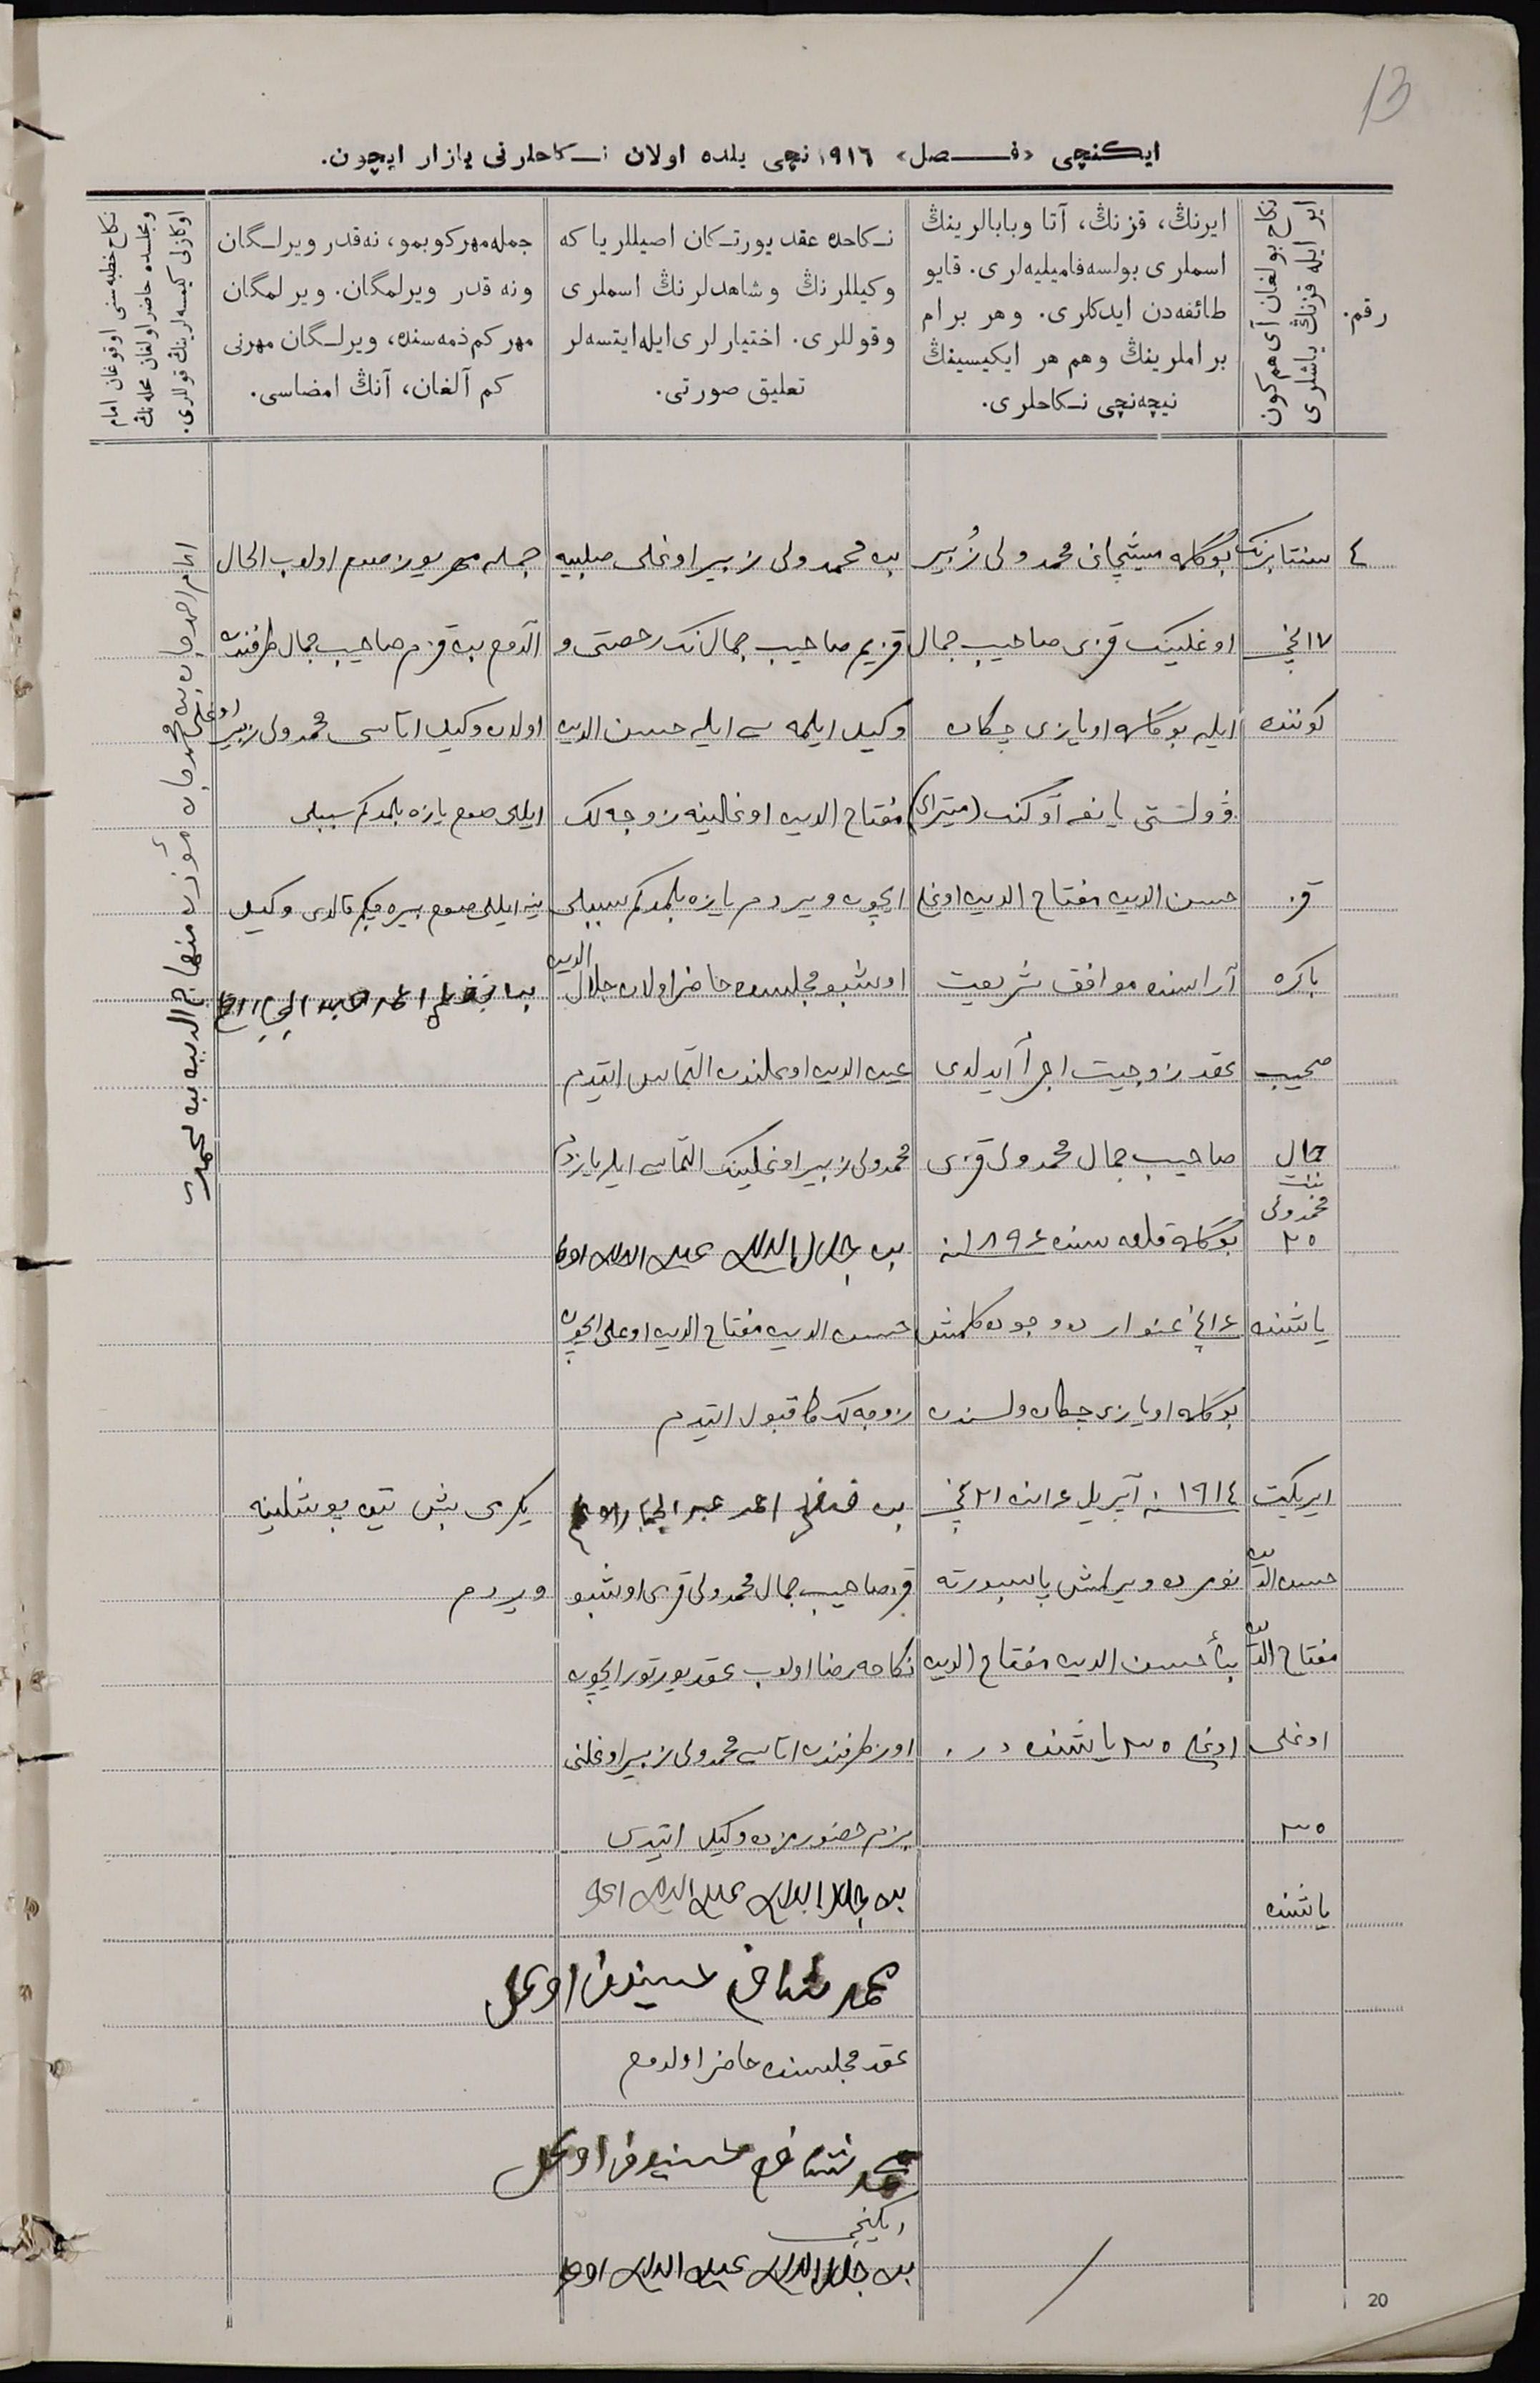 13
ایكنچی «فـصل» ١٩١٦نچی یلده اولان نـكاحلرنی یازار ایچون.
رقم.
ایر ایله قزنڭ یاشلری
نكاح بولغان آی هم كون
ایرنڭ، قزنڭ، آتا وبابالرینڭ
اسملری بولسه فامیلیه‌لری. قایو
طائفه‌دن ایدكلری. وهر برام
براملرینڭ وهم هر ایكیسینڭ
نیچه‌نچی نـكاحلری.
نـكاحده عقد یورتـكان اصیللر یا كه
وكیللرنڭ وشاهدلرنڭ اسملری
وقوللری. اختیارلری ایله ایتسه‌لر
تعلیق صورتی.
جمله مهر كوبمو، نه‌قدر ویرلـگان
ونه قدر ویرلمگان. ویرلمگان
مهر كم ذمه‌سنده، ویرلـگان مهرنی
كم آلغان، آنڭ امضاسی.
نكاح خطبه‌سنی اوقوغان امام
ومجلسده حاضر اولغان محله‌نڭ
اوكازلی كیمسه‌لرینڭ قوللری.
٤
سنتابرنك
١٧ نچی
كوننده
قز
باكره
صحیب
جمال
بنت
محمدولی
٢٥
یاشنده
ایریكیت
حسن الدین
مفتاح الدین
اوغلی
٣٥
یاشنده
بوگلمه میشچانی محمدولی زُبیر
اوغلینك قزی صاحیب جمال
ایله بوگلمه اویازی چكان
ۋولستی یانغه آوكنك (میترای)
حسن الدین مفتاح الدین اوغلی
آراسنده موافق شریعت
عقد زوجیت اجرأ ایدلدی
صاحیب جمال محمدولی قزی
بوگلمه قلعه سنده ١٨٩٤ نه
١٤ نچی غنوارده وجوده كلمش
بوگلمه اویازی چكان ولسندن
١٩١٤ نه آپریل ١٤ نده ٢١ نچی
نومرده ویرلمش پاسپورته
بنأ حسن الدین مفتاح الدین
اوغلی ٣٥ یاشنده در.
بن محمدولی زبیر اوغلی صلبیه
قزیم صاحیب جمال نك رخصتی و
وكیل ایلمه سی ایله حسن الدین
مفتاح الدین اوغالینه زوجه لك
ایچون ویردم یازه بلمدكم سببلی
اوشبو مجلسده حاضر اولان جلال الدین
عین الدین اوغلندن التماس ایتدم
محمدولی زبیر اوغلینك التماسی ایله یازدم
بن جلال الدین عین الدین اوغلی
حسن الدین مفتاح الدین اوغلی ایچون
زوجه لك كا قبول ایتدم
بن فضل احمد عبد الجبار اوغلی
قز صاحیب جمال محمدولی قزی اوشبو
نكاحه رضا اولوب عقد یورتور ایچون
اوز طرفندن اتاسی محمدولی زبیر اوغلنی
بزم حضورمزده وكیل ایتدی
بن جلال الدین عین الدین اوغلی
محمد شاه حسینوف اوغلی
عقد مجلسنده حاضر اولدوم
محمد شاه حسینوف اوغلی
ایكنچی
بن جلال الدین عین الدین اوغلی
جمله مهر یوز صوم اولوب الحال
آلدوم بن قزم صاحیب جمال طرفندن
اولان وكیل اتاسی محمدولی زبیر اوغلی
ایللی صوم یازه بلمدكم سببلی
ینه ایللی صوم بیره چكم قالدی وكیل
بن فضل احمد عبد الجبار اوغلی
یكرمی بش تین بوشلینه
ویردم
امام احمدجان بن محمدجان مؤذن منهاج الدین بن محمد
20